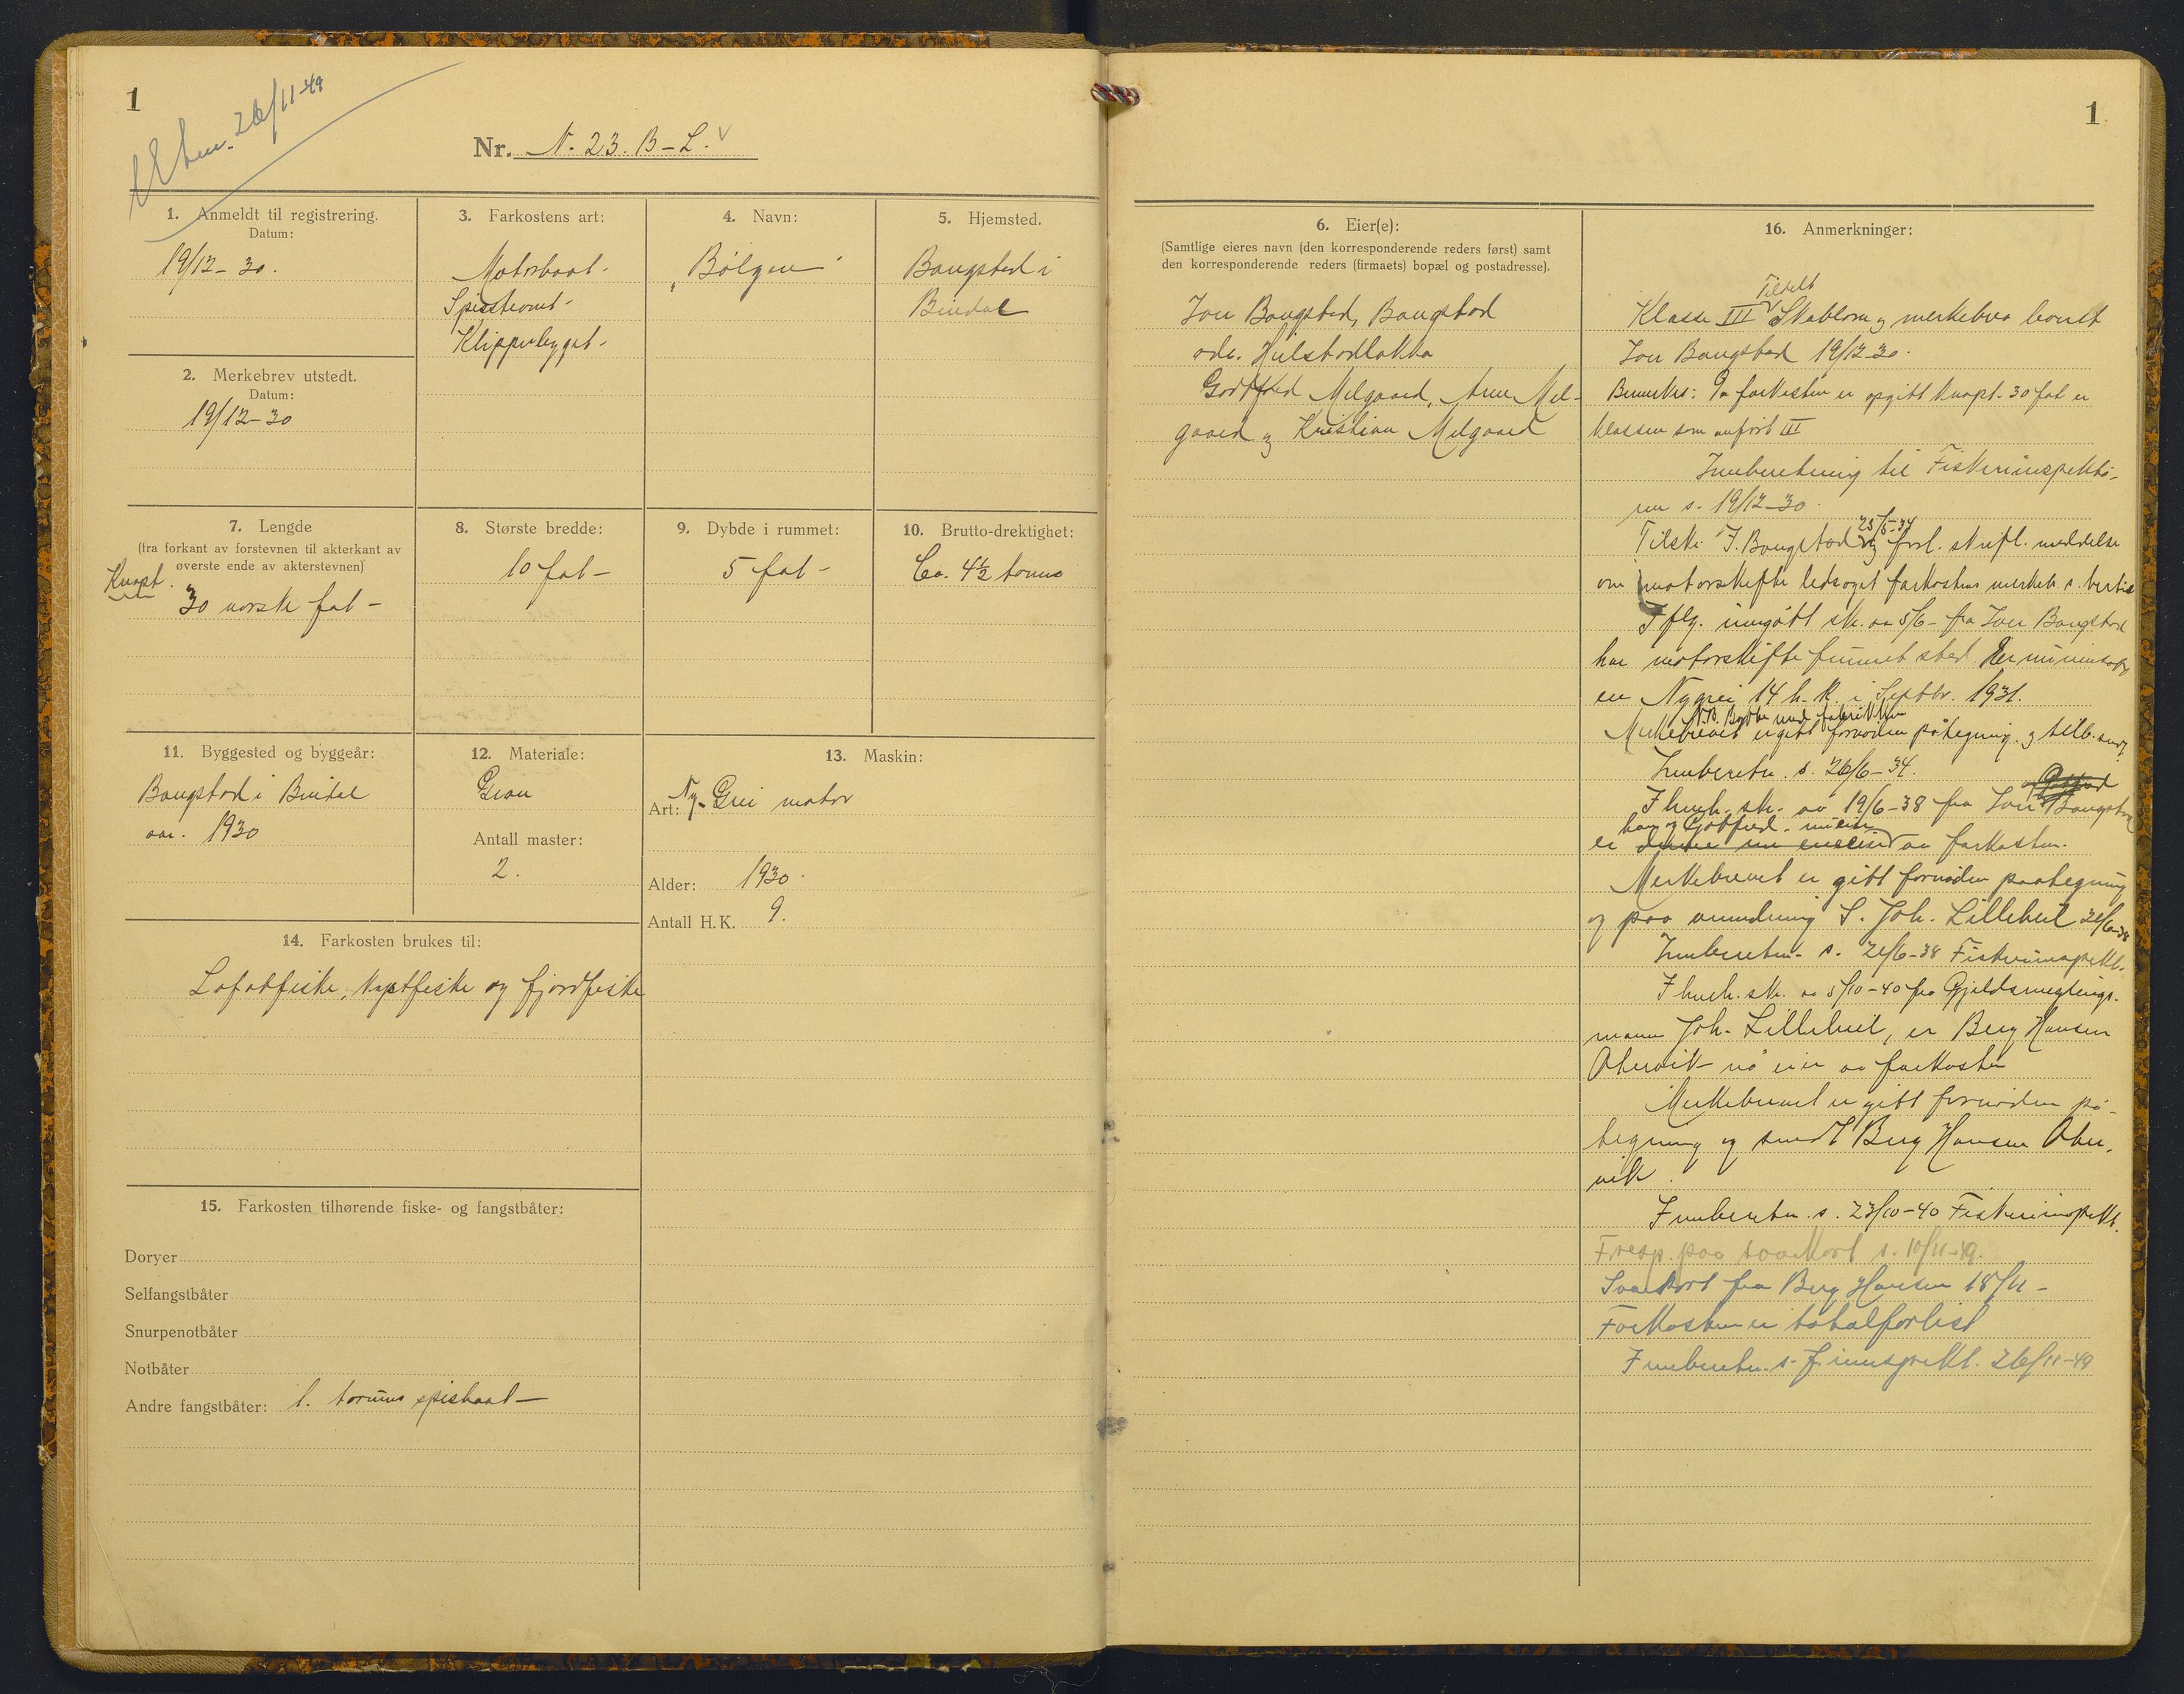 1
26/11-49
Nr. N. 23. B-L.
1. Anmeldt til registrering.
Datum:
19/12-30.
2. Merkebrev utstedt.
Datum:
19/12-30
3. Farkostens art:
Motorbaat-
Klipperbygget-
4. Navn:
„Bölgen"
5. Hjemsted.
Bangstad i
Bindal
7. Lengde
(fra forkant av forstevnen til akterkant av
øverste ende av akterstevnen)
Knapt.
30 norske fot-
8. Største bredde:
10 fot-
9. Dybde i rummet:
5 fot-
10. Brutto-drektighet:
Ca. 4½ tonns
11. Byggested og byggeår:
Bangstad i Bindal
aar. 1930
12. Materiale:
Gran
Antall master:
2.
13. Maskin:
Art: Ny-Grei motor
Alder: 1930.
Antall H.K. 9.
14. Farkosten brukes til:
Lofotfiske, kystfiske og fjordfiske
15. Farkosten tilhørende fiske- og fangstbåter:
Doryer
Selfangstbåter
Snurpenotbåter
Notbåter
Andre fangstbåter: 1. spisbaat-
1
6. Eier(e):
(Samtlige eieres navn (den korresponderende reders først) samt
den korresponderende reders (firmaets) bopæl og postadresse).
Jon Bangstad, Bangstad
Godtfred Melgaard, Arne Mel-
gaard og Kristian Melgaard
16. Anmerkninger:
Tildelt
Klasse III Skablon og merkebrev
Jon Bangstad 19/12-30.
Bemerkes: Da farkosten er opgitt knapt-30 fot er
klassen som anført III
Innberetning til Fiskeriinspektø-
ren s. 19/12-30.
23/5-34
Tilskr. J. Bangstad og forl. skriftl. meddelelse
om motorskifte ledsaget farkostens merkeb.
Iflg. inngått skr. av 5/6- fra Jon Bangstad
har motorskifte funnet sted.
en Nygrei 14 h.k. i Septbr. 1931.
Merkebrevet er gitt fornøden påtegning og tilb. sendt
Innberetn. s. 26/6-34.
I henh. skr. av 19/6-38 fra Jon Bangstad
han og Gotfred
er av farkosten.
Merkebrevet er gitt fornøden paategning
og paa anmodning S. Joh. Lilleheil 21/6-38
Innberetn. s. 21/6-38 Fiskeriinspekt.
I henh. skr. av 5/10-40 fra Gjeldsmeglings-
mann Joh. Lilleheil, er Berg Hansen
Åkervik nå eier av farkosten
Merkebrevet er gitt fornøden på-
tegning og sendt Berg Hansen Åker-
vik.
Innberetn. s. 23/10-40 Fiskeriinspekt.
Foresp. paa svarkort s. 10/11-49.
Svarkort fra Berg Hansen 18/11-
Farkosten er totalforlist
Innberetn. s. f.innspekt. 26/11-49